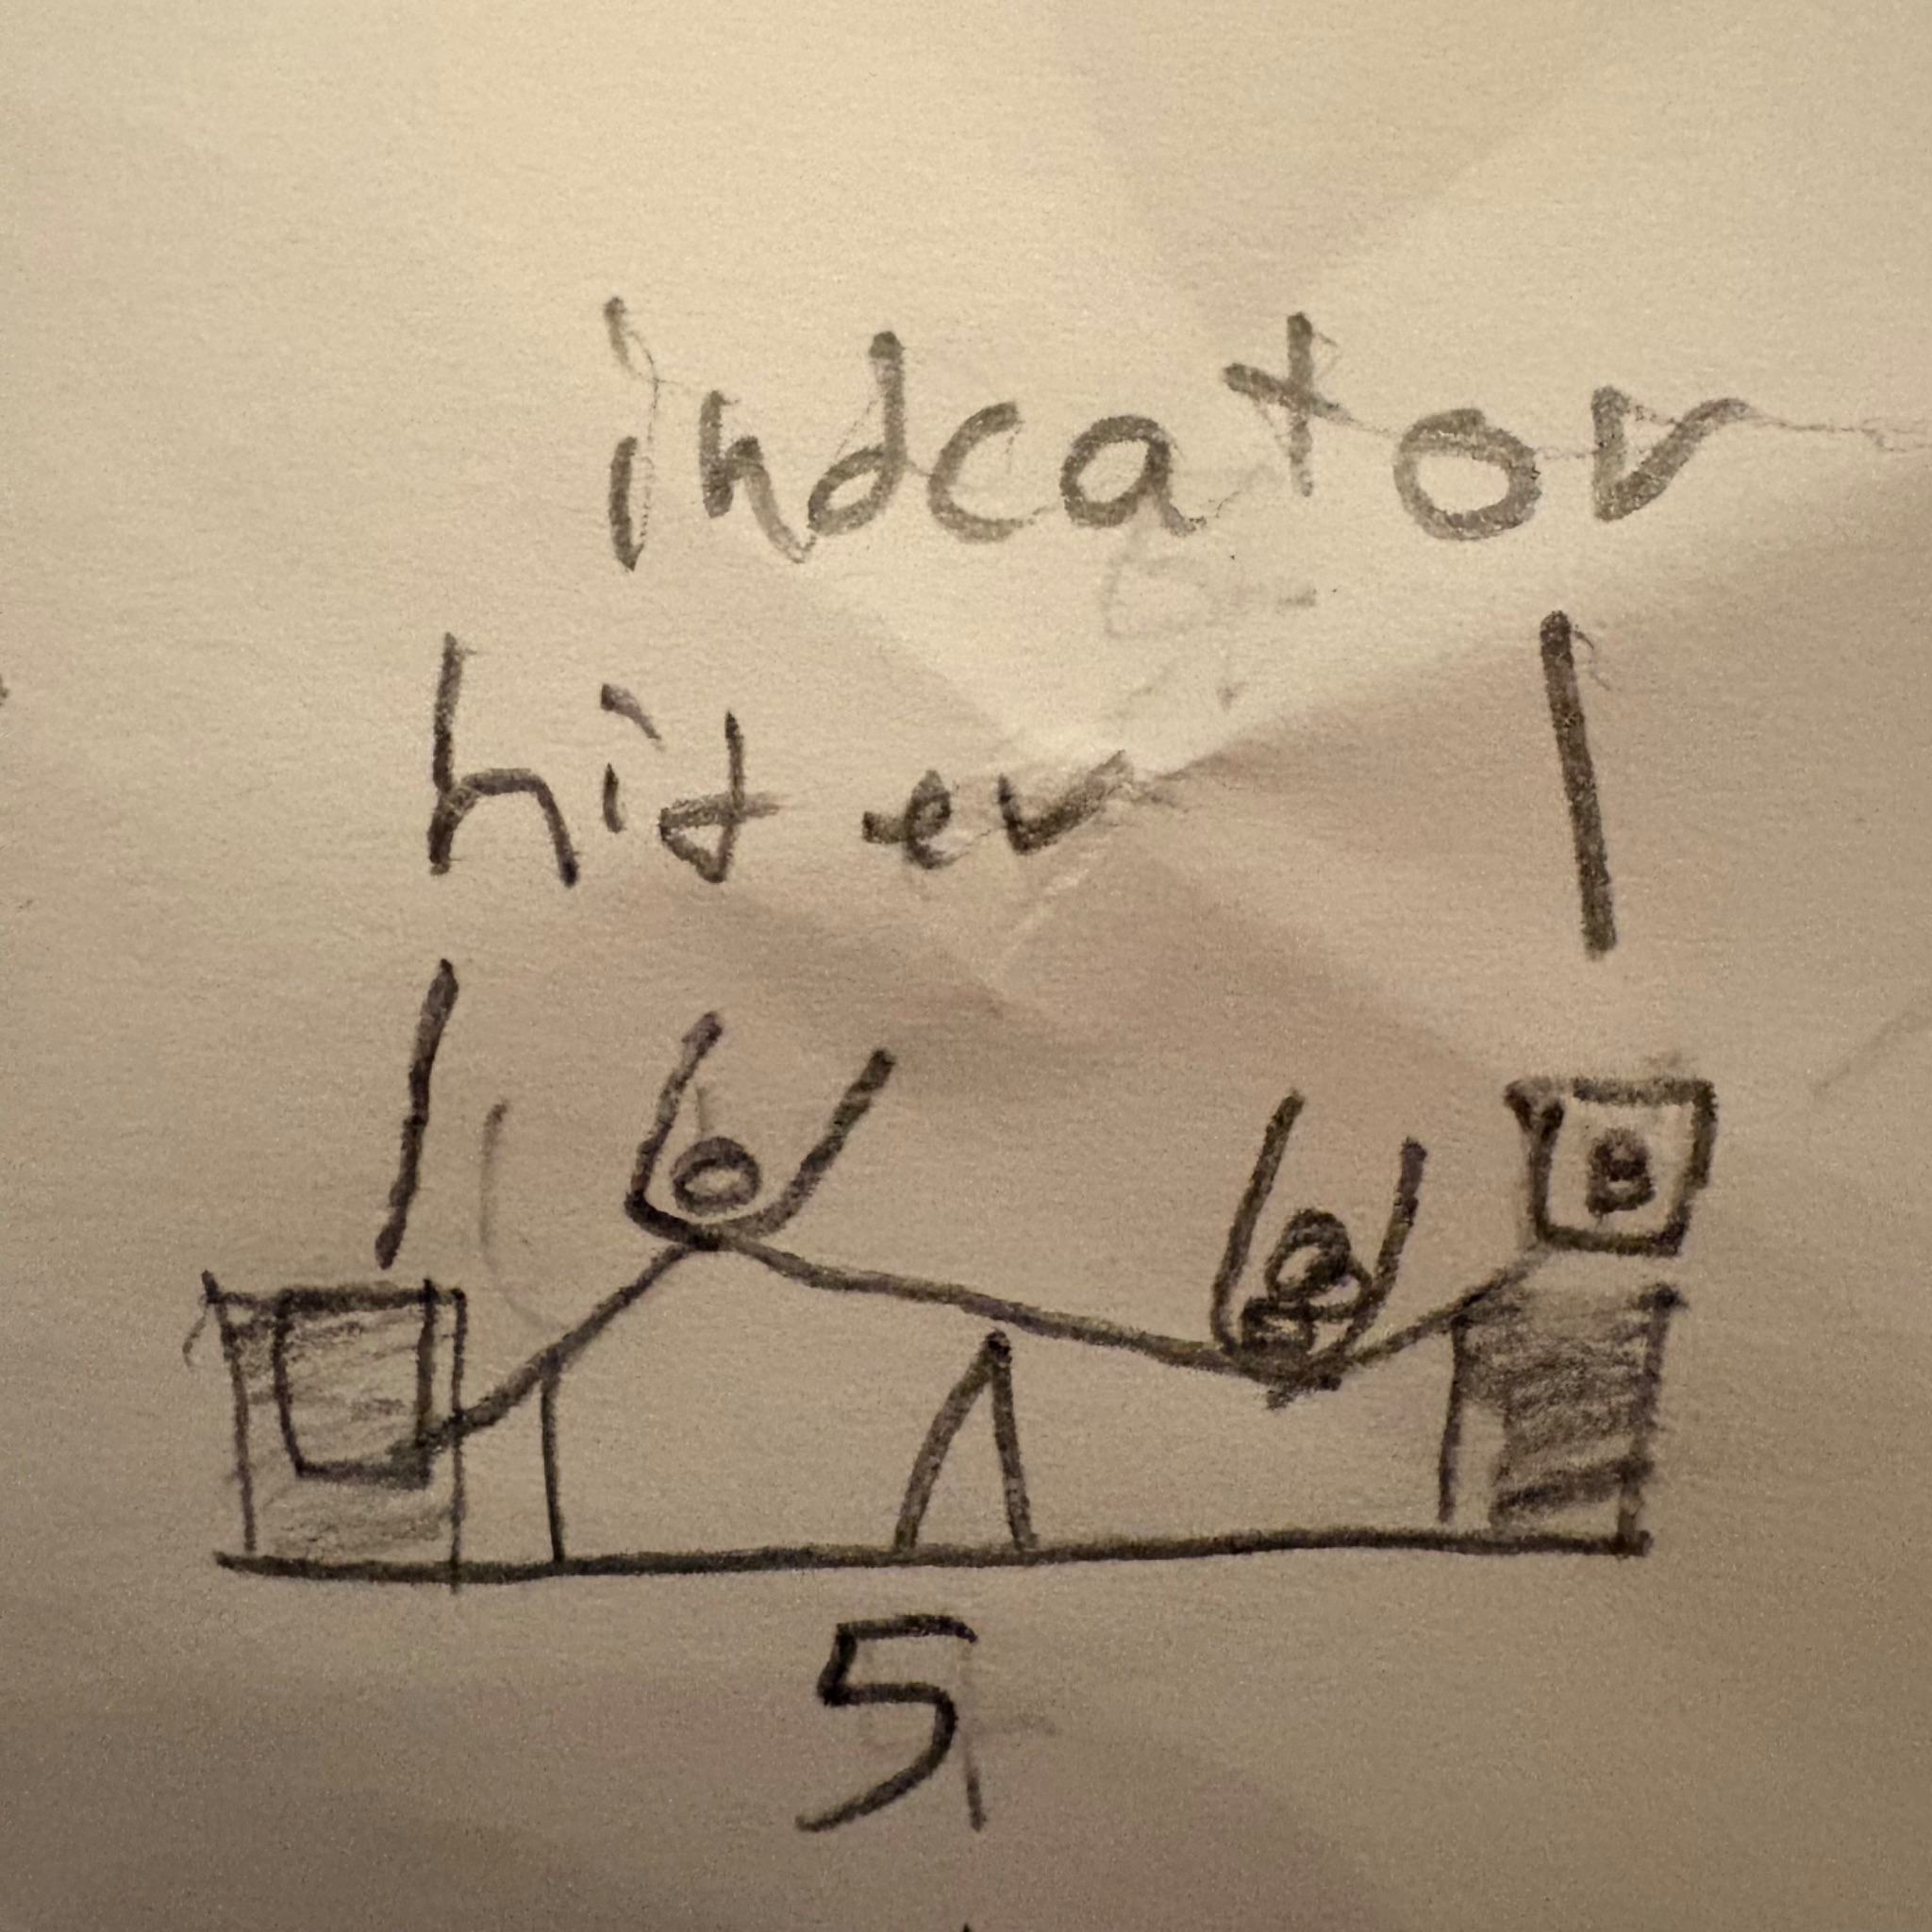 indcator
hiter
B
5